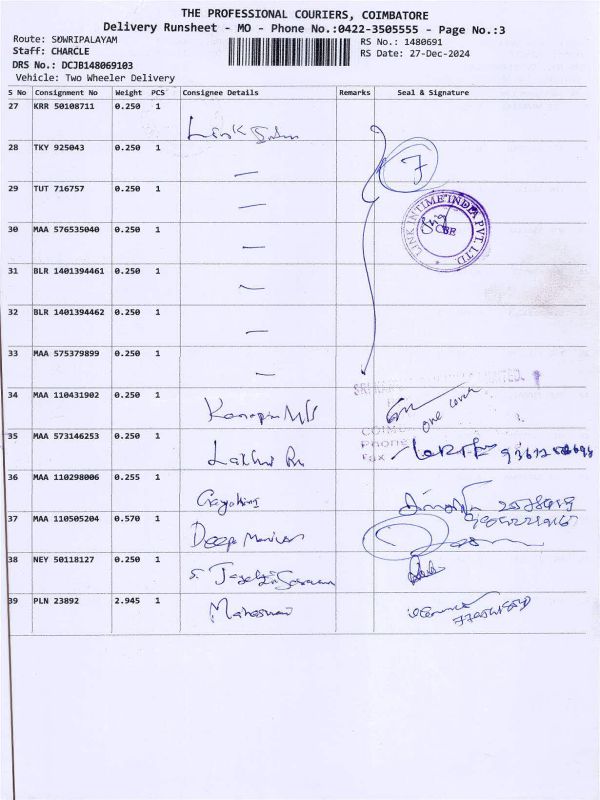 THE PROFESSIONAL COURIERS, COIMBATORE
Delivery Runsheet - MO - Phone No.:0422-3505555 - Page No.:3
Route: SOWRIPALAYAM
RS No.: 1480691
Staff: CHARCLE
RS Date: 27-Dec-2024
DRS No.: DCJB148069103
Vehicle: Two Wheeler Delivery
S No Consignment No Weight PCS Consignee Details Remarks Seal & Signature
27 KRR 50108711 0.250 1 Link
28 TKY 925043 0.250 1 — 7
29 TUT 716757 0.250 1 —
LINK INTIME INDIA PVT. LTD. CBE
30 MAA 576535040 0.250 1 —
31 BLR 1401394461 0.250 1 —
32 BLR 1401394462 0.250 1 —
33 MAA 575379899 0.250 1 —
34 MAA 110431902 0.250 1 one cover
35 MAA 573146253 0.250 1 Lakhmi
Phone
Fax
36 MAA 110298006 0.255 1
37 MAA 110505204 0.570 1 Deepa
38 NEY 50118127 0.250 1 S.
39 PLN 23892 2.945 1 Maheswari